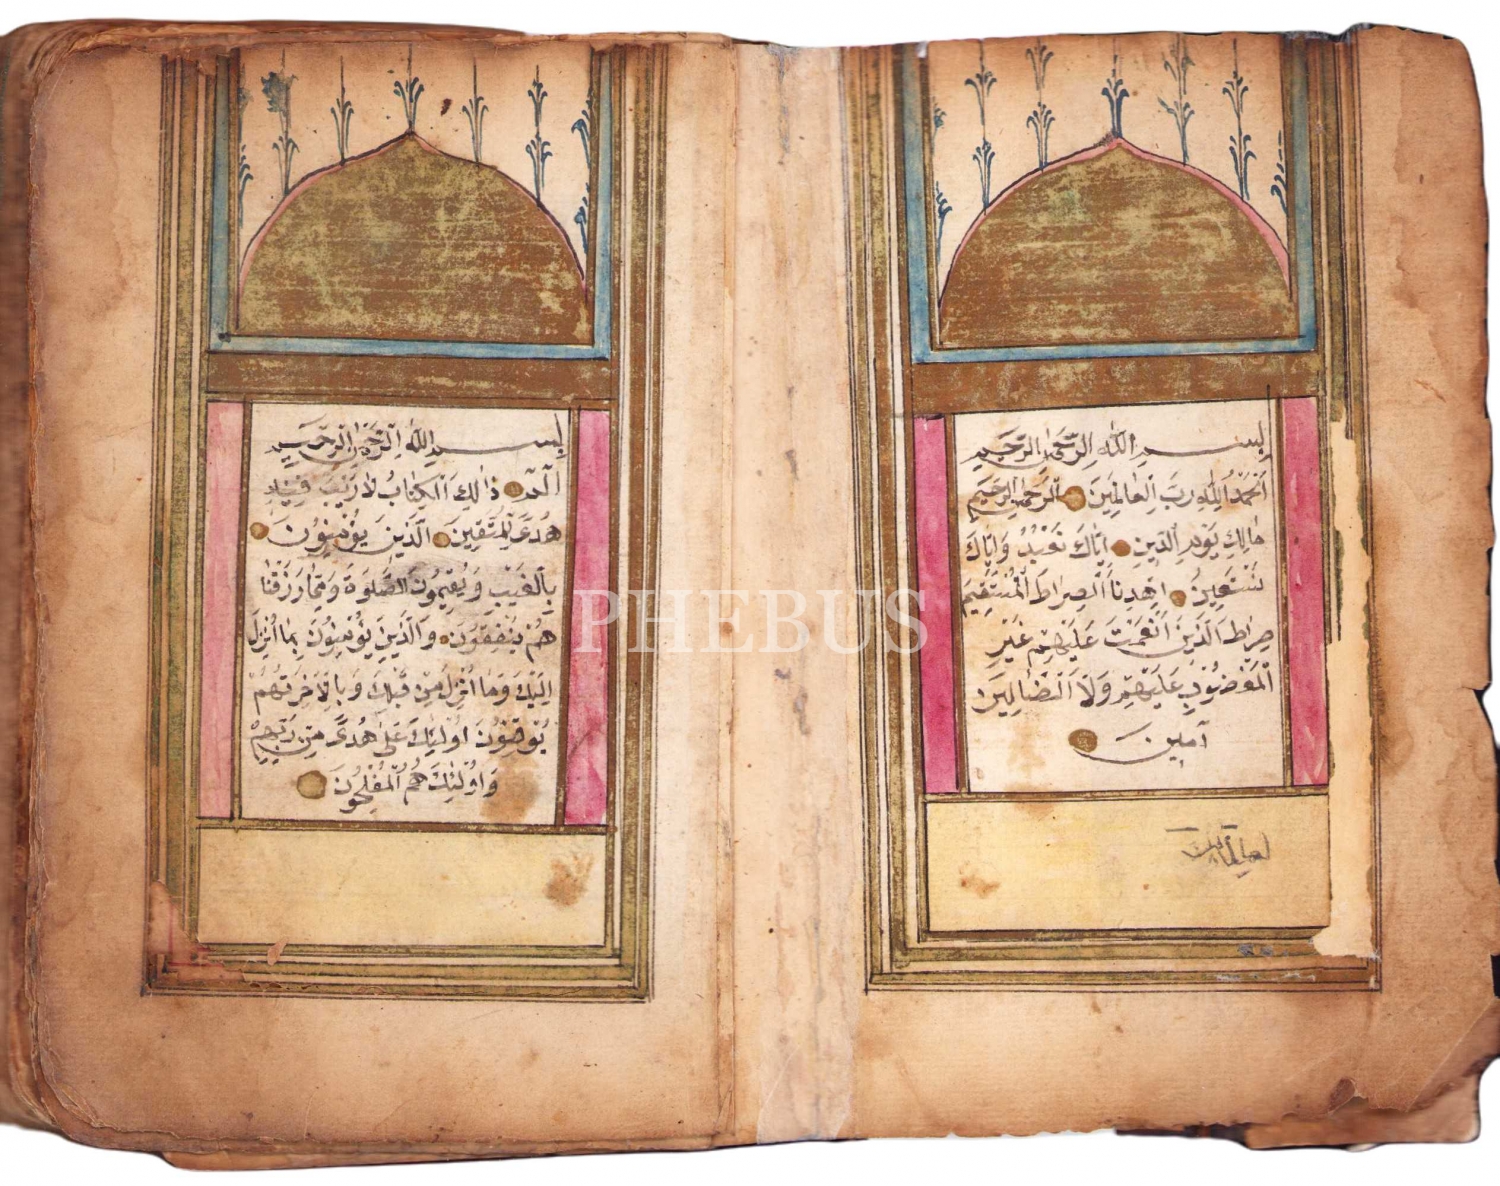 بِسْمِ اللّٰهِ الرَّحْمٰنِ الرَّحِيمِ
اَلْحَمْدُ لِلّٰهِ رَبِّ الْعَالَمِينَ الرَّحْمٰنِ الرَّحِيمِ
مَالِكِ يَوْمِ الدِّينِ اِيَّاكَ نَعْبُدُ وَاِيَّاكَ
نَسْتَعِينُ اِهْدِنَا الصِّرَاطَ الْمُسْتَقِيمَ
صِرَاطَ الَّذِينَ اَنْعَمْتَ عَلَيْهِمْ غَيْرِ
الْمَغْضُوبِ عَلَيْهِمْ وَلَا الضَّالِّينَ
آمين
بِسْمِ اللّٰهِ الرَّحْمٰنِ الرَّحِيمِ
الٓمٓ ذٰلِكَ الْكِتَابُ لَا رَيْبَ فِيهِ
هُدًى لِلْمُتَّقِينَ الَّذِينَ يُؤْمِنُونَ
بِالْغَيْبِ وَيُقِيمُونَ الصَّلٰوةَ وَمِمَّا رَزَقْنَا
هُمْ يُنْفِقُونَ وَالَّذِينَ يُؤْمِنُونَ بِمَا اُنْزِلَ
اِلَيْكَ وَمَا اُنْزِلَ مِنْ قَبْلِكَ وَبِالْاٰخِرَةِ هُمْ
يُوقِنُونَ اُولٰئِكَ عَلٰى هُدًى مِنْ رَبِّهِمْ
وَاُولٰئِكَ هُمُ الْمُفْلِحُونَ
PHEBUS